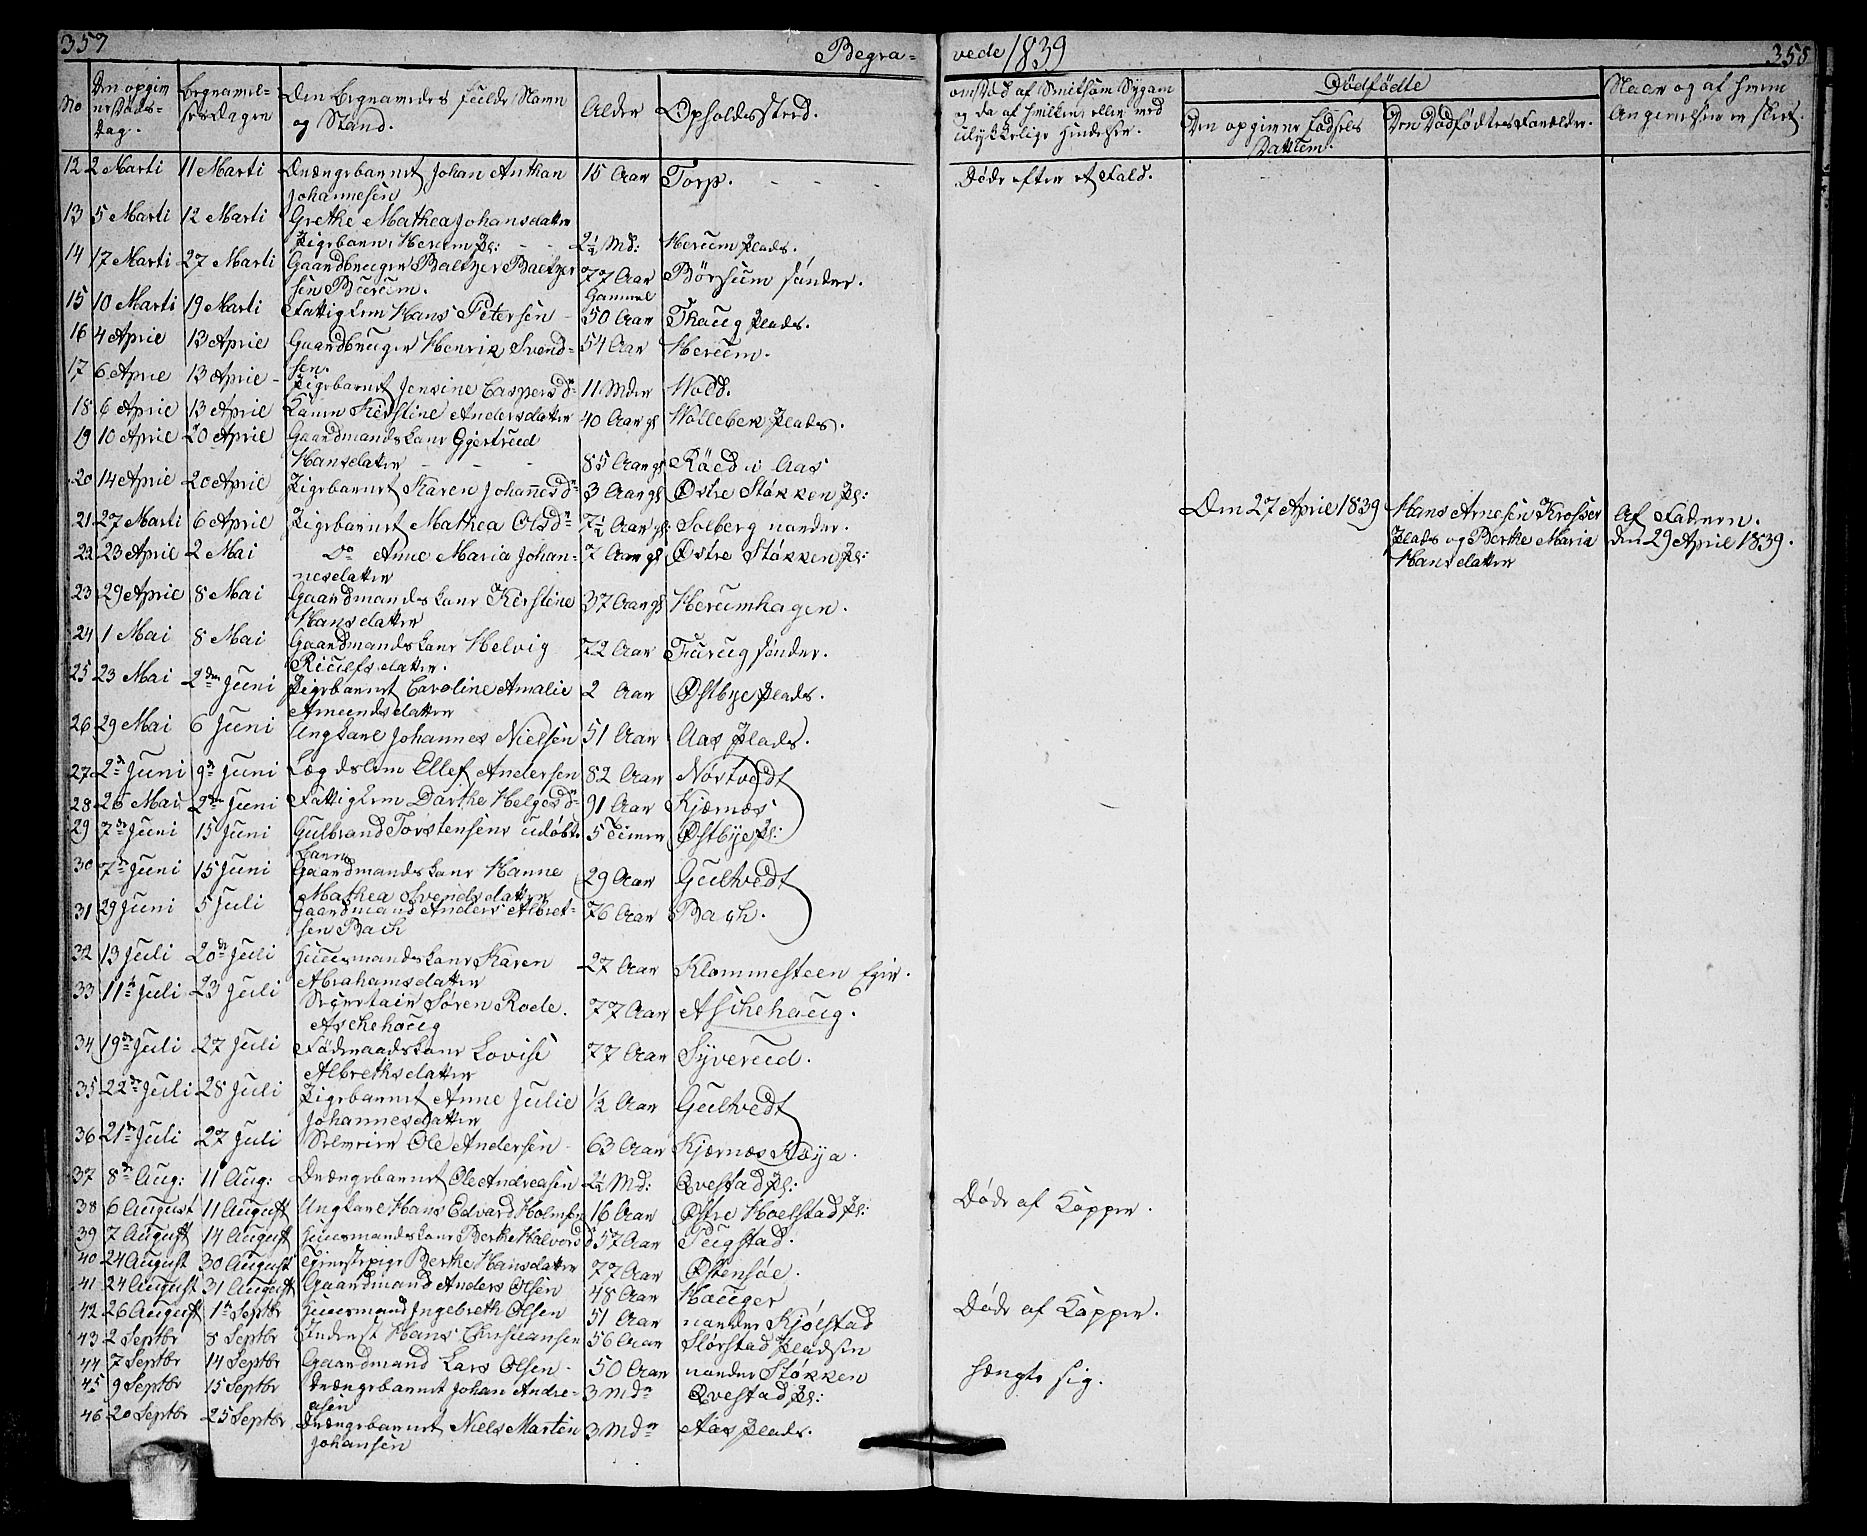 357
Begra-
vede 1839
358
No
Den opgivne Døds-dag.
Begravelsesdagen
Den Begravedes fulde Navn og Stand.
Alder
Opholdssted.
om Død af Smitsom Sygdom og da af hvilken eller ved ulykkelige Hendelser.
Dødfødte
Den opgivne Fødsels Dattum.
Den Dødfødtes Forældre.
Naar og af hvem Angivelsen er skeet.
12 2 Marti 11 Marti Drængebarnet Johan Anthon Johannesen 15 Aar Torp. Døde efter et Fald.
13 5 Marti 12 Marti Grethe Mathea Johansdatter Pigebarn, Herum Pl: 2½ Md: Herum Plads.
14 17 Marti 27 Marti Gaardbruger Baltzer Baltzersen Burum. 77 Aar Gammel Børsum søndre.
15 10 Marti 19 Marti Fattiglem Hans Petersen 50 Aar Skaug Plads.
16 4 April 13 April Gaardbruger Henrik Svendsen. 54 Aar Herum.
17 6 April 13 April Pigebarnet Jensine Caspersdr 11 Mder Wodd.
18 6 April 13 April Konen Kirstine Andersdatter 40 Aar gl Wollebek Plads.
19 10 April 20 April Gaardmandskone Gjertrud Hansdatter 85 Aar gl Röed i Aas
20 14 April 20 April Pigebarnet Karen Johannesdr 3 Aar gl Østre Støkken Pl:
21 27 Marti 6 April Pigebarnet Mathea Olsdr 7½ Aar gl: Solberg nordre. Den 27 April 1839 Hans Arnesen Krosser Plads og Berthe Maria Hansdatter Af Faderen. den 29 April 1839.
22 23 April 2 Mai Do Anne Maria Johannesdatter 7 Aar gl Østre Støkken Pl:
23 29 April 8 Mai Gaardmandskone Kirstine Hansdatter 37 Aar gl Herumhagen.
24 1 Mai 8 Mai Gaardmandskone Helvig Riculfsdatter. 72 Aar Furug søndre.
25 23 Mai 2den Juni Pigebarnet Caroline Amalie Amundsdatter 2 Aar Østbye Plads.
26 29 Mai 6 Juni Ungkarl Johannes Nielsen 51 Aar Aas Plads.
27 2de Juni 9de Juni Lægdslem Ellef Andersen 82 Aar Nortvedt
28 26 Mai 2den Juni Fattiglem Dorthe Helgesdr 91 Aar Kjærnes
29 7de Juni 15 Juni Gulbrand Torstensens udøbt Barn 5 Timer Østbye Pl:
30 7de Juni 15 Juni Gaardmandskone Hanne Mathea Svendsdatter 29 Aar Gultvedt
31 29 Juni 5 Juli Gaardmand Anders Albretsen Bach 76 Aar Bach.
32 13 Juli 20de Juli Huusmandskone Karen Abrahamsdatter 27 Aar Klommesteen Egir.
33 11te Juli 23 Juli Secretair Søren Rode. Aschehoug 77 Aar Aschehoug.
34 19de Juli 27 Juli Føderaadskone Lovise Albrethsdatter 77 Aar Syverud.
35 22de Juli 28 Juli Pigebarnet Anne Julie Johannesdatter 1/2 Aar Gultvedt
36 21de Juli 27 Juli Selveier Ole Andersen 63 Aar Kjærnes Køya.
37 8de Aug: 11 Aug: Drængebarnet Ole Andreasen 2½ Md: Qvestad Pl:
38 6 August 11 August Ungkarl Hans Edvard Holmsen 16 Aar Østre Hoelstad Pl: Døde af Kopper.
39 7 August 14 August Huusmandskone Berthe Halvorsd 57 Aar Pugstad.
40 24 August 30 August Tjenestepige Berthe Hansdatter 77 Aar Østensøe.
41 24 August 31 August Gaardmand Anders Olsen 48 Aar Hauger
42 26 August 1te Septbr Huusmand Ingebreth Olsen 51 Aar nordre Kjølstad Døde af Kopper.
43 2 Septbr 8 Septbr Inderst Hans Christiansen 56 Aar Storstad Pladsen
44 7 Septbr 14 Septbr Gaardmand Lars Olsen 50 Aar nordre Støkken hængte sig.
45 9 Septbr 15 Septbr Drængebarnet Johan Andreasen 3 Mdr Qvestad Pl:
46 20 Septbr 25 Septbr Drængebarnet Niels Martin Johansen 3 Mdr Aas Plads.